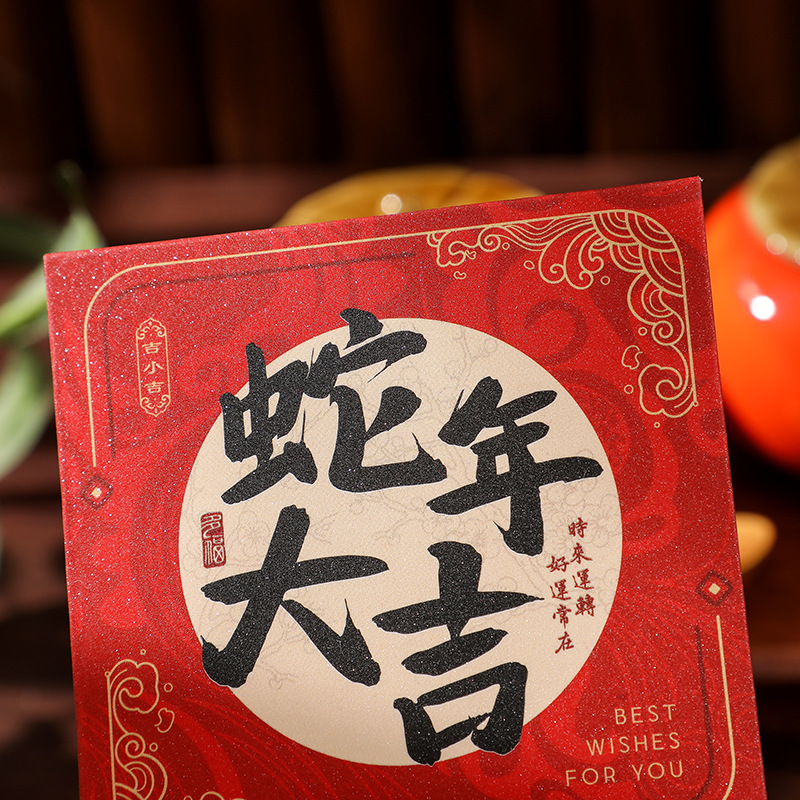 吉小吉
蛇年
大吉
多福
時來運轉
好運常在
BEST
WISHES
FOR YOU